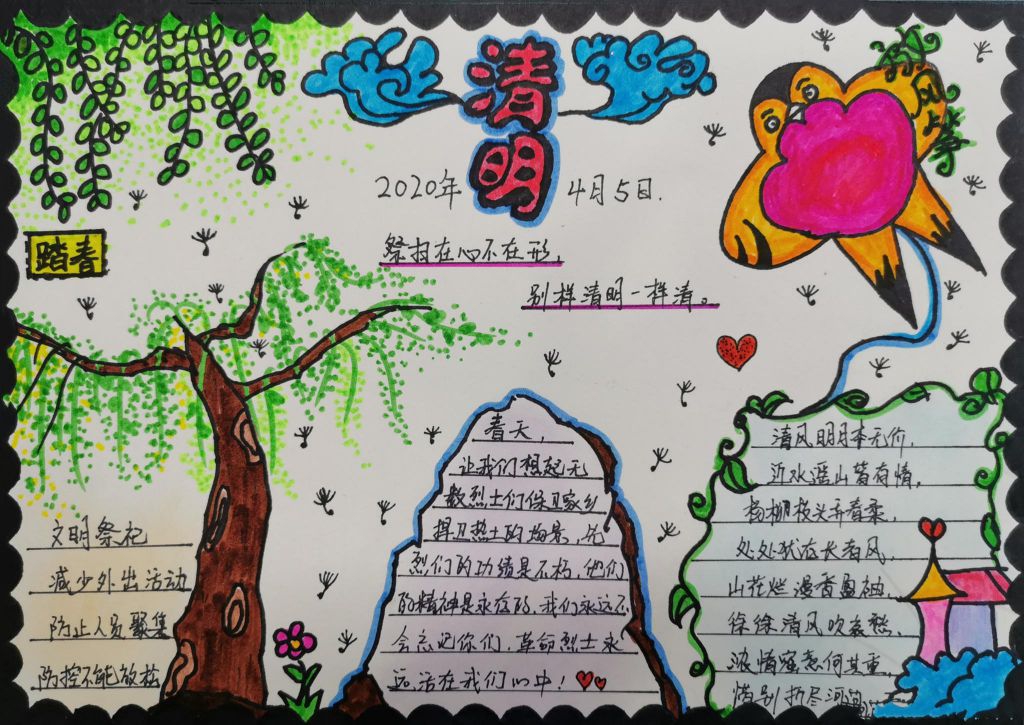 清明
2020年 4月5日.
祭扫在心不在形，
别样清明一样清。
风筝
踏春
文明祭祀
减少外出活动
防止人员聚集
防控不能放松
春天，
让我们想起无
数烈士们保卫家乡
捍卫热土的场景，先
烈们的功绩是不朽，他们
的精神是永存的，我们永远不
会忘记你们，革命烈士永
远活在我们心中！
清风明月本无价，
近水遥山皆有情，
杨柳枝头弄春柔，
处处犹存长者风，
山花烂漫香盈袖，
徐徐清风吹哀愁，
浓情蜜意何其重
惜别折尽河